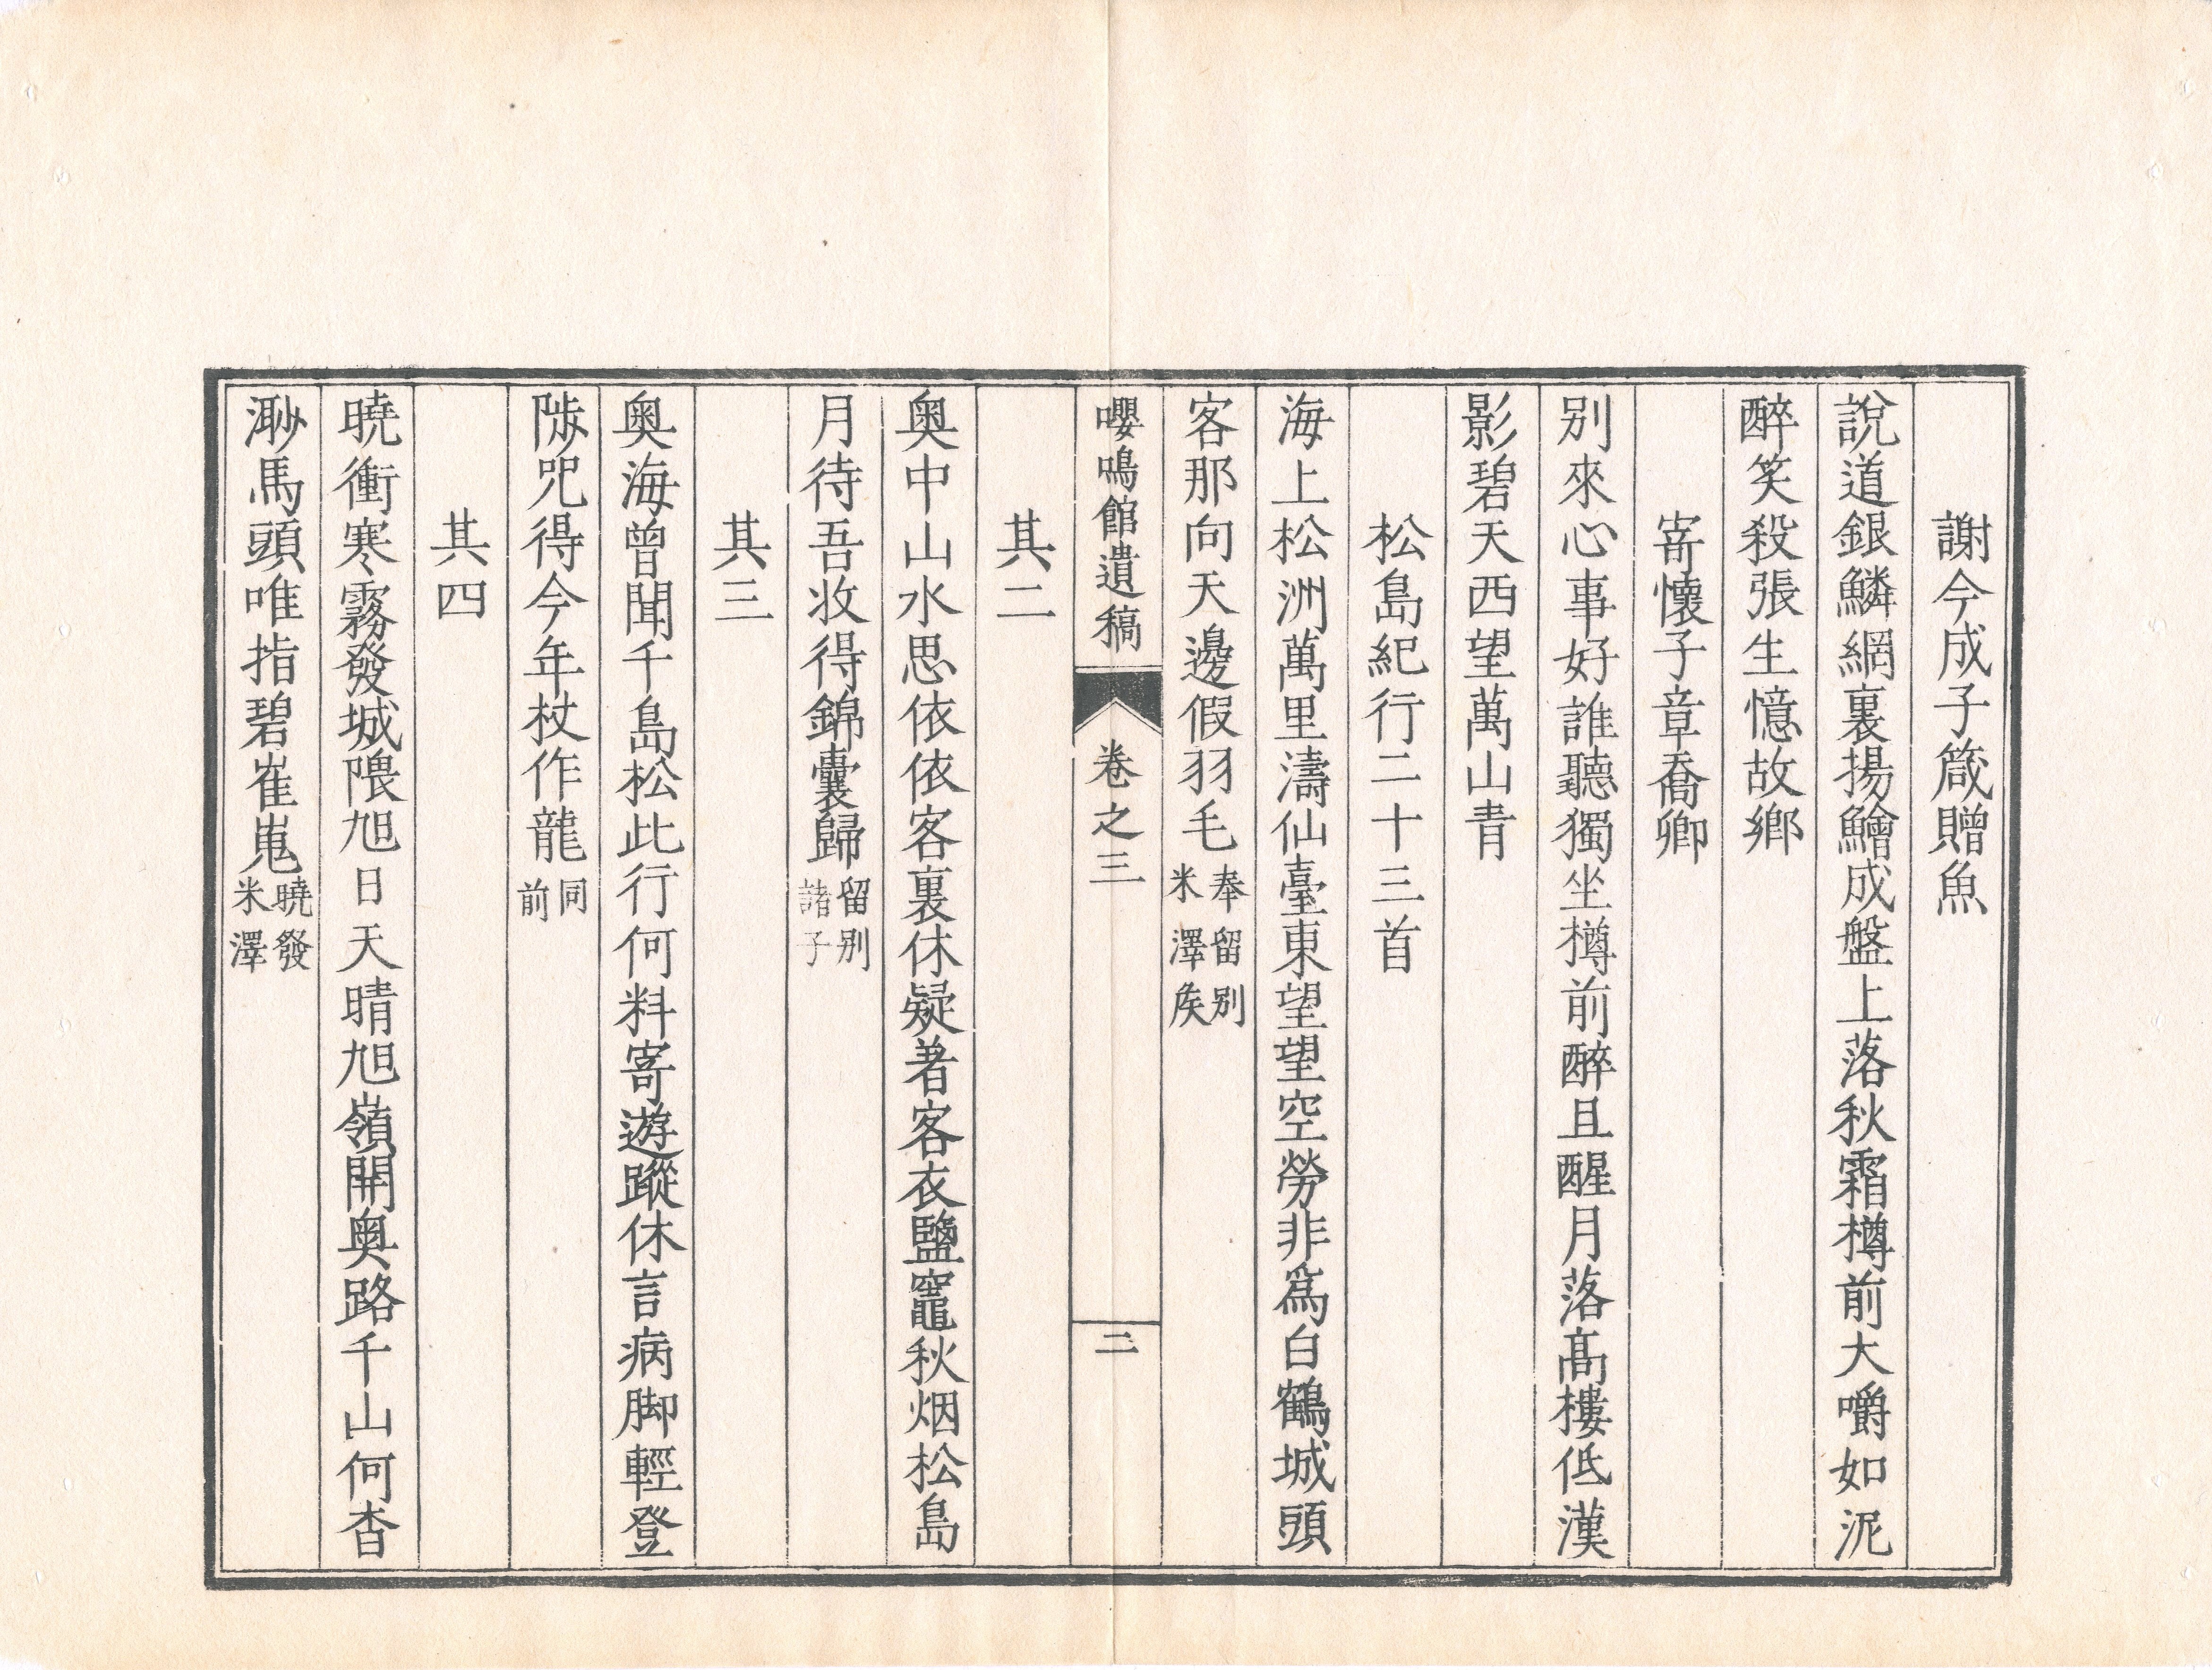 謝今成子箴贈魚
說道銀鱗網裏揚鱠成盤上落秋霜樽前大嚼如泥
醉笑殺張生憶故鄉
寄懷子章喬卿
別來心事好誰聽獨坐樽前醉且醒月落高樓低漢
影碧天西望萬山青
松島紀行二十三首
海上松洲萬里濤仙臺東望望空勞非爲白鶴城頭
客那向天邊假羽毛奉留別米澤矦
嚶鳴館遺稿 卷之三 二
其二
奥中山水思依依客裏休疑著客衣鹽竈秋烟松島
月待吾收得錦囊歸留別諸子
其三
奥海曾聞千島松此行何料寄遊蹤休言病脚輕登
陟咒得今年杖作龍同前
其四
曉衝寒霧發城隈旭日天晴旭嶺開奥路千山何杳
渺馬頭唯指碧崔嵬曉發米澤